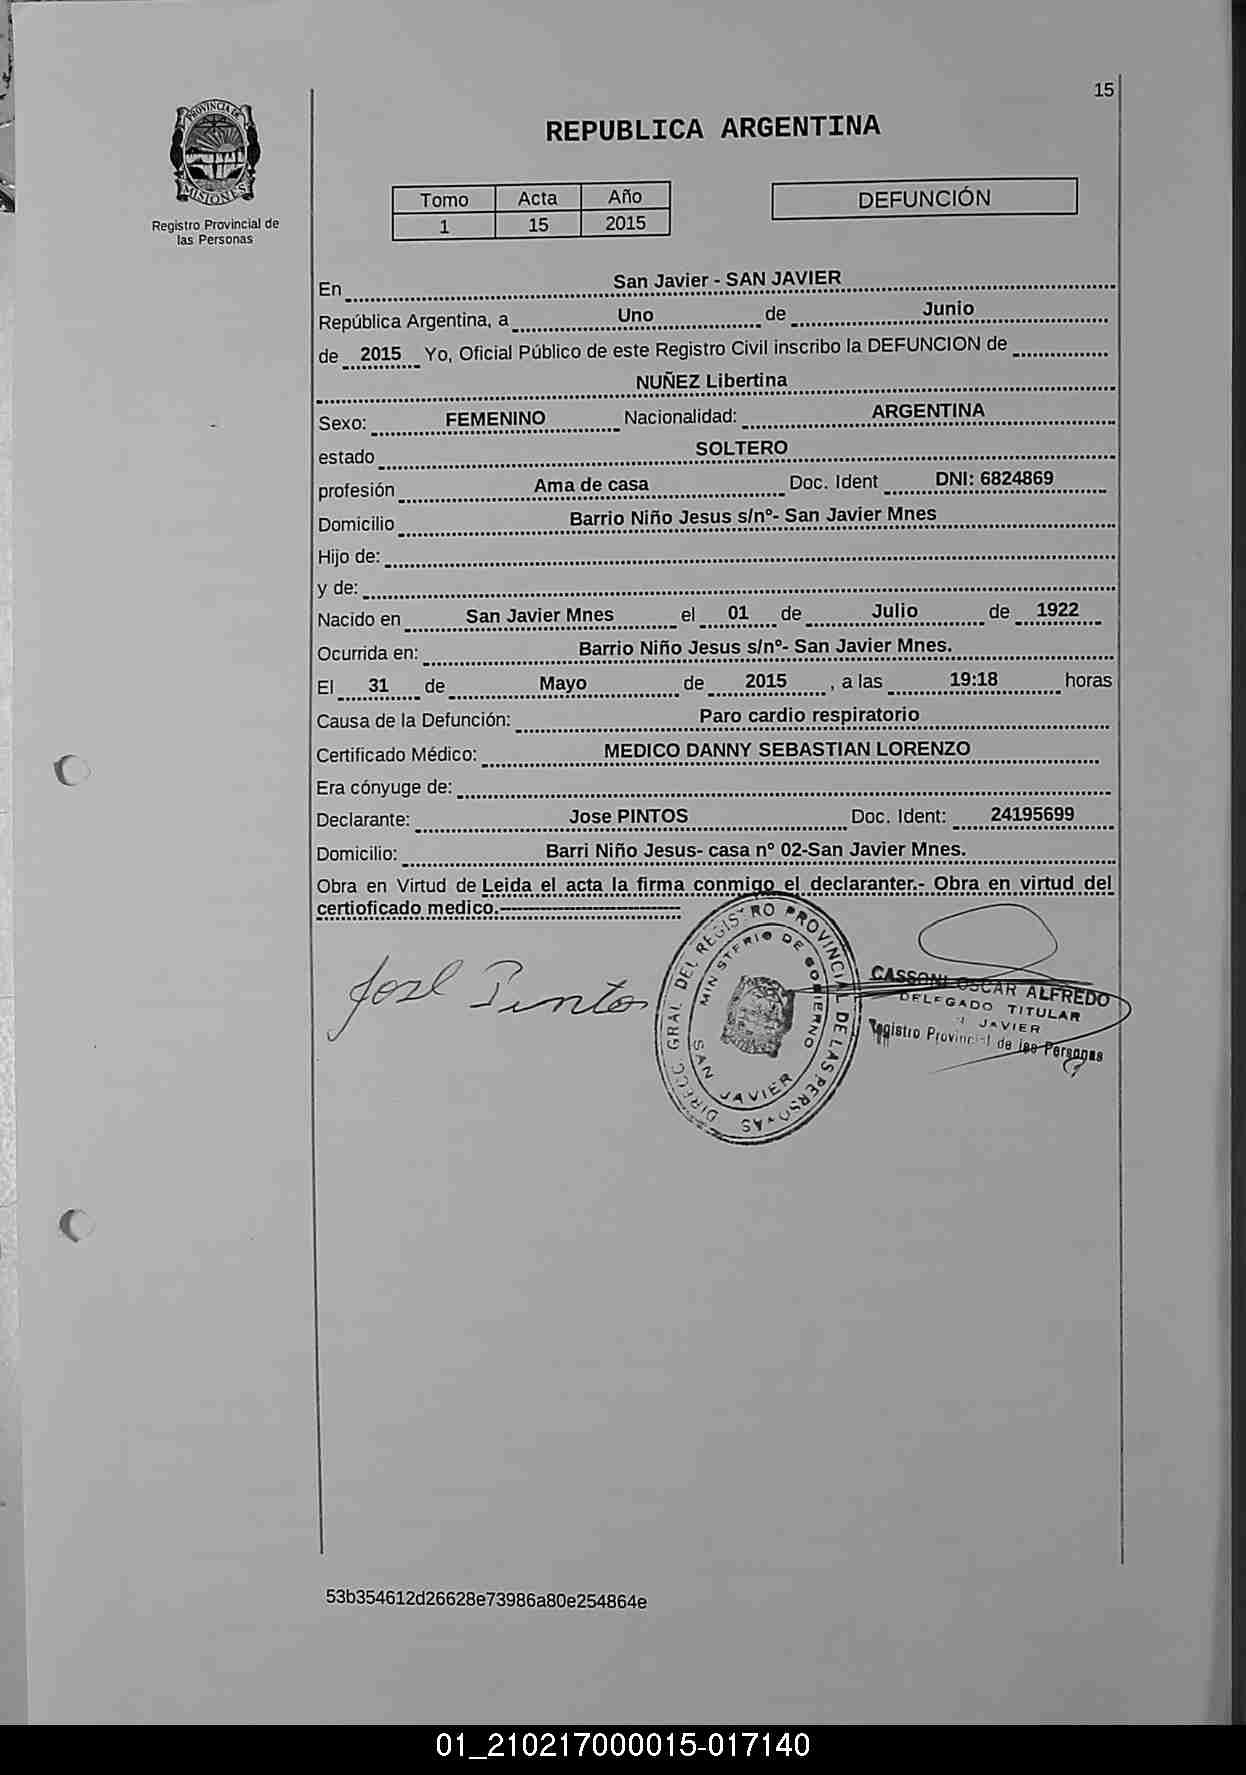 15
PROVINCIA DE
MISIONES
Registro Provincial de
las Personas
REPUBLICA ARGENTINA
Tomo Acta Año
1 15 2015
DEFUNCIÓN
En San Javier - SAN JAVIER
República Argentina, a Uno de Junio
de 2015 Yo, Oficial Público de este Registro Civil inscribo la DEFUNCION de
NUÑEZ Libertina
Sexo: FEMENINO Nacionalidad: ARGENTINA
estado SOLTERO
profesión Ama de casa Doc. Ident DNI: 6824869
Domicilio Barrio Niño Jesus s/nº- San Javier Mnes
Hijo de:
y de:
Nacido en San Javier Mnes el 01 de Julio de 1922
Ocurrida en: Barrio Niño Jesus s/nº- San Javier Mnes.
El 31 de Mayo de 2015 , a las 19:18 horas
Causa de la Defunción: Paro cardio respiratorio
Certificado Médico: MEDICO DANNY SEBASTIAN LORENZO
Era cónyuge de:
Declarante: Jose PINTOS Doc. Ident: 24195699
Domicilio: Barri Niño Jesus- casa nº 02-San Javier Mnes.
Obra en Virtud de Leida el acta la firma conmigo el declaranter.- Obra en virtud del
certioficado medico.-
José Pintos
DIRECC. GRAL. DEL REGISTRO PROVINCIAL DE LAS PERSONAS
MINISTERIO DE GOBIERNO
SAN JAVIER
CASSONI OSCAR ALFREDO
DELEGADO TITULAR
JAVIER
Registro Provincial de las Personas
53b354612d26628e73986a80e254864e
01_210217000015-017140